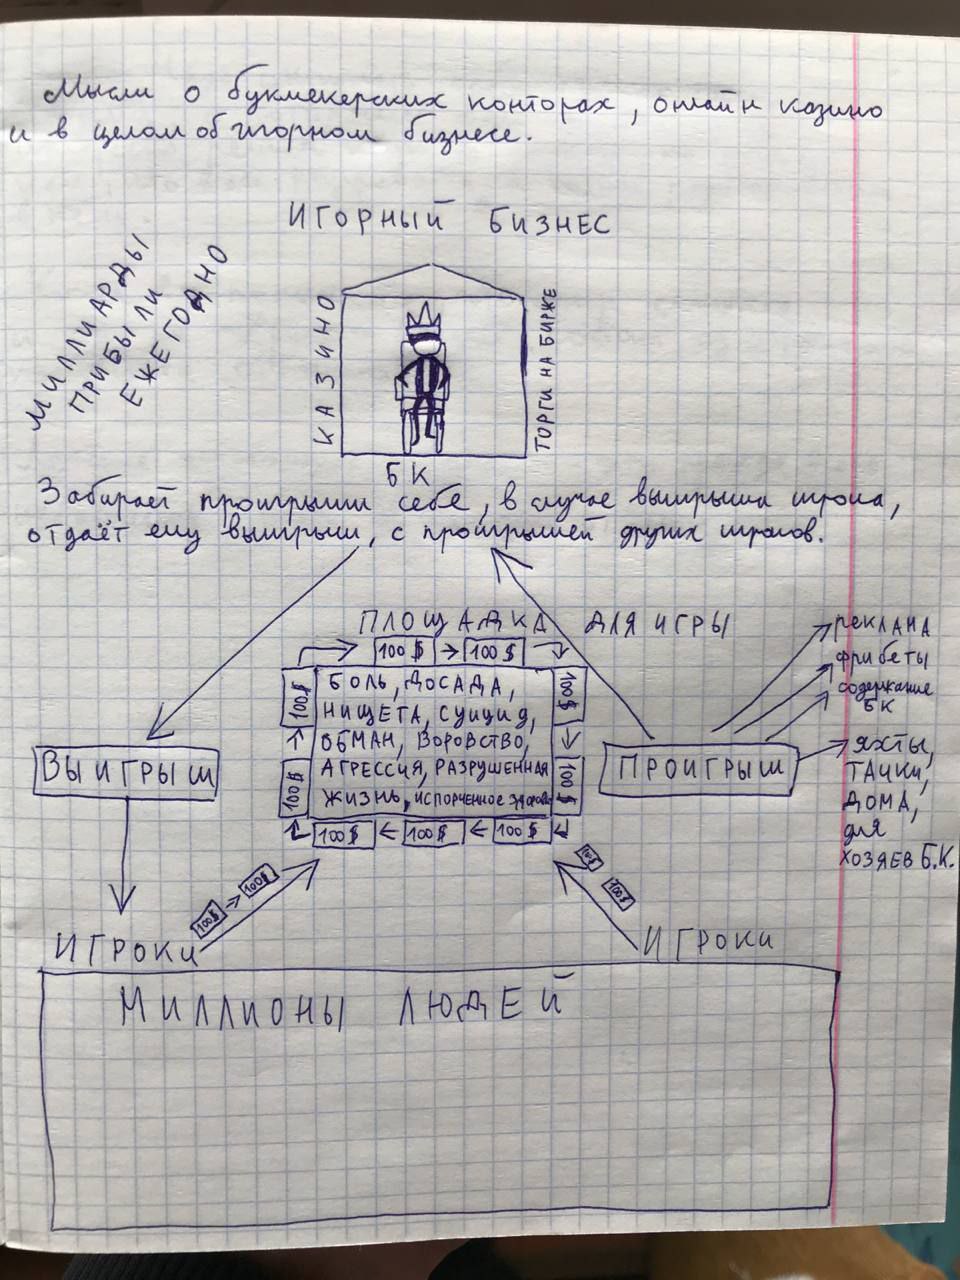 Мысли о букмекерских конторах, онлайн казино
и в целом об игорном бизнесе.
ИГОРНЫЙ БИЗНЕС
МИЛЛИАРДЫ
ПРИБЫЛИ
ЕЖЕГОДНО
КАЗИНО
ТОРГИ НА БИРЖЕ
БК
Забирает проигрыши себе, в случае выигрыша игрока,
отдаёт ему выигрыш, с проигрышей других игроков.
ПЛОЩАДКА ДЛЯ ИГРЫ
100$ 100$
100$
100$
100$
100$
БОЛЬ, ДОСАДА,
НИЩЕТА, СУИЦИД,
ОБМАН, ВОРОВСТВО,
АГРЕССИЯ, РАЗРУШЕННАЯ
ЖИЗНЬ, ИСПОРЧЕННОЕ
100$ 100$ 100$
реклама
фрибеты
содержание
БК
ЯХТЫ,
ТАЧКИ,
ДОМА,
для
ХОЗЯЕВ Б.К.
ВЫИГРЫШ
ПРОИГРЫШ
100$ 100$
100$ 100$
ИГРОКИ
ИГРОКИ
МИЛЛИОНЫ ЛЮДЕЙ